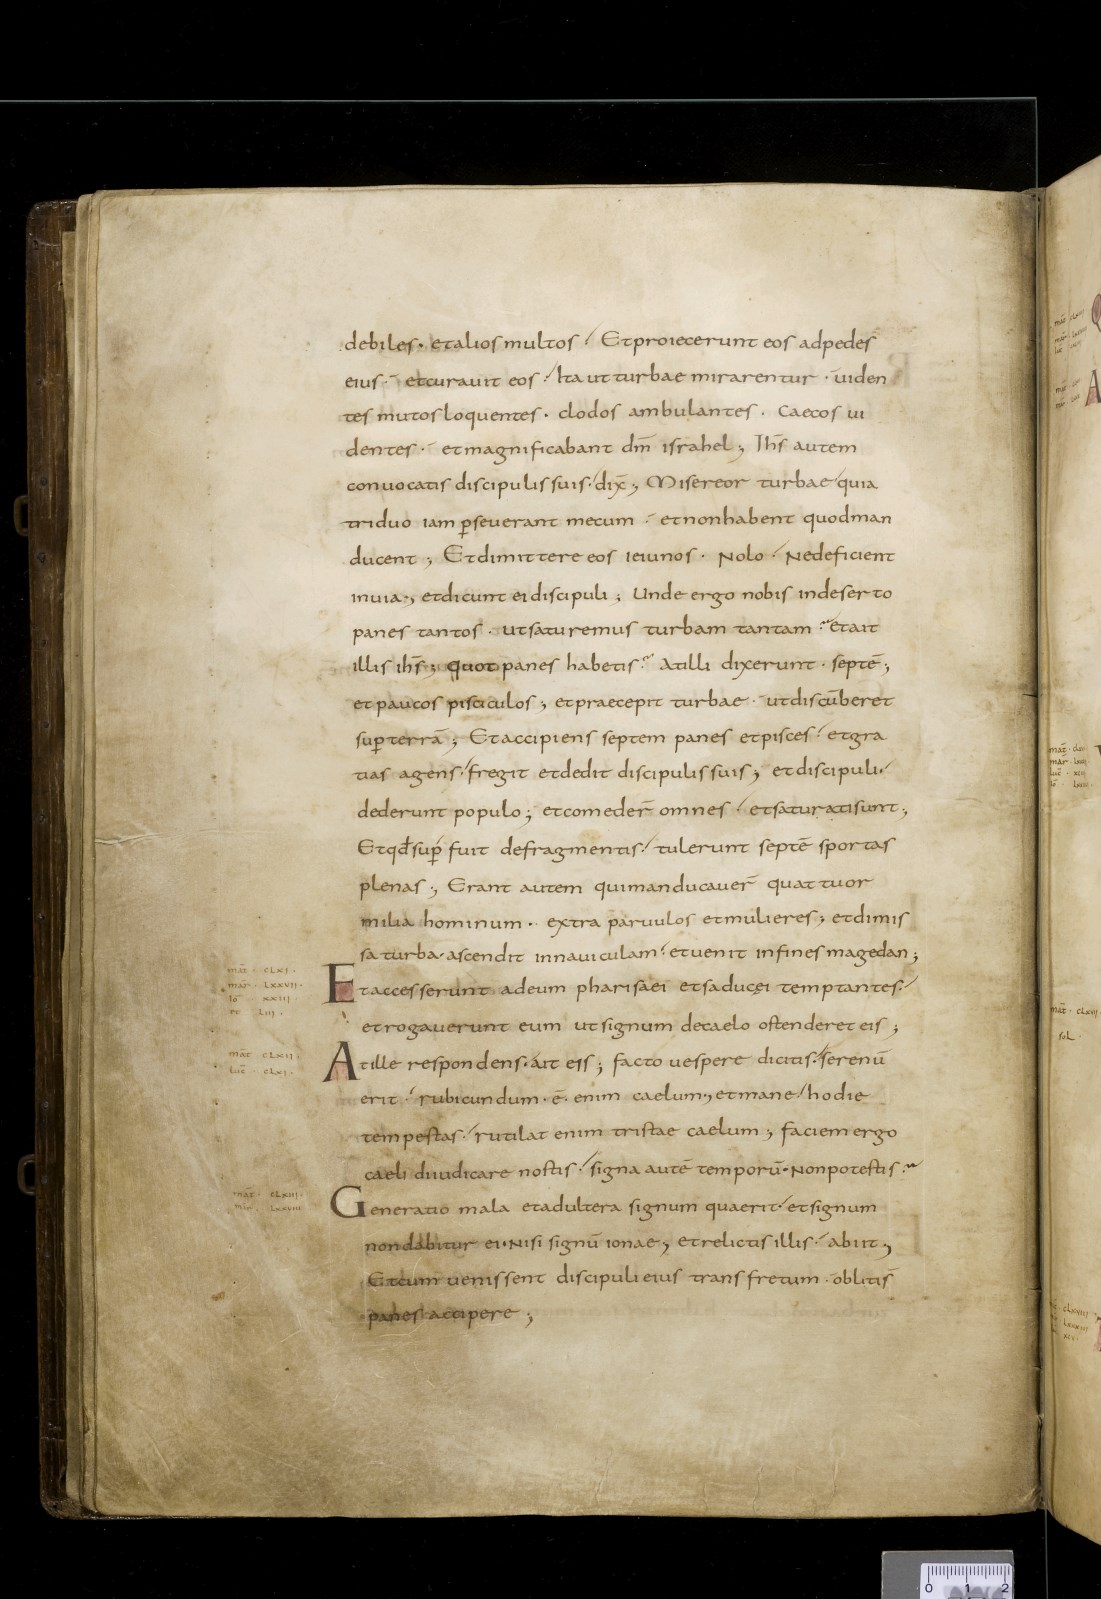 debiles. et alios multos / Et proiecerunt eos ad pedes
eius. et curavit eos / Ita ut turbae mirarentur. uiden
tes mutos loquentes. clodos ambulantes. caecos ui
dentes. et magnificabant dm̄ israhel; Ihs̄ autem
convocatis discipulis suis. dix̄; Misereor turbae quia
triduo iam ꝑseuerant mecum. et non habent quod man
ducent; Et dimittere eos ieiunos. Nolo / Ne deficient
in uia; et dicunt ei discipuli; Unde ergo nobis in deserto
panes tantos. ut saturemus turbam tantam? et ait
illis ihs̄; quot panes habetis? At illi dixerunt. septē;
et paucos pisciculos; et praecepit turbae. ut discūberet
suꝑ terrā; Et accipiens septem panes et pisces / et gra
tias agens / fregit et dedit discipulis suis; et discipuli
dederunt populo; et comeder̄ omnes / et saturati sunt;
Et qđ suꝑ fuit de fragmentis / tulerunt septē sportas
plenas; Erant autem qui manducauer̄ quattuor
milia hominum. extra paruulos et mulieres; et dimis
sa turba. ascendit in nauiculam / et uenit in fines magedan;
mat̄. CLXI.
mar. LXXVII.
Io XXIII.
et LIII.
Et accesserunt ad eum pharisaei et saducęi temptantes /
et rogauerunt eum ut signum de caelo ostenderet eis;
mat̄ CLXII.
luc̄. CLXI.
At ille respondens. ait eis; facto uespere dicitis / serenū
erit / rubicundum. ē. enim caelum; et mane / hodie
tempestas / rutilat enim tristae caelum; faciem ergo
caeli diiudicare nostis / signa autē temporū. Non potestis?
mat̄. CLXIII.
mar. LXXVIII
Generatio mala et adultera signum quaerit / et signum
non dabitur ei. Nisi signū ionae; et relictis illis / abiit;
Et cum uenissent discipuli eius trans fretum. obliti s̄
panes accipere;
mat̄. CLXVI.
sol.
0 1 2